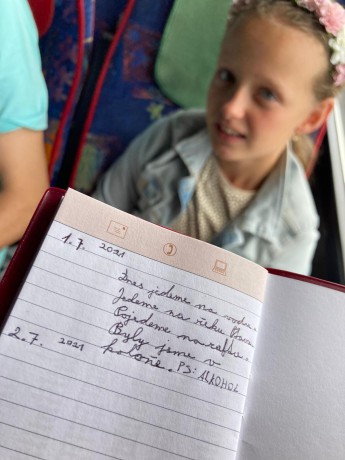 1.7. 2021
Dnes jedeme na vodu.
Jedeme na řeku
Pojedeme na raftu
Byly jsme v
2.7. 2021
koloně. PS: ALKOHOL